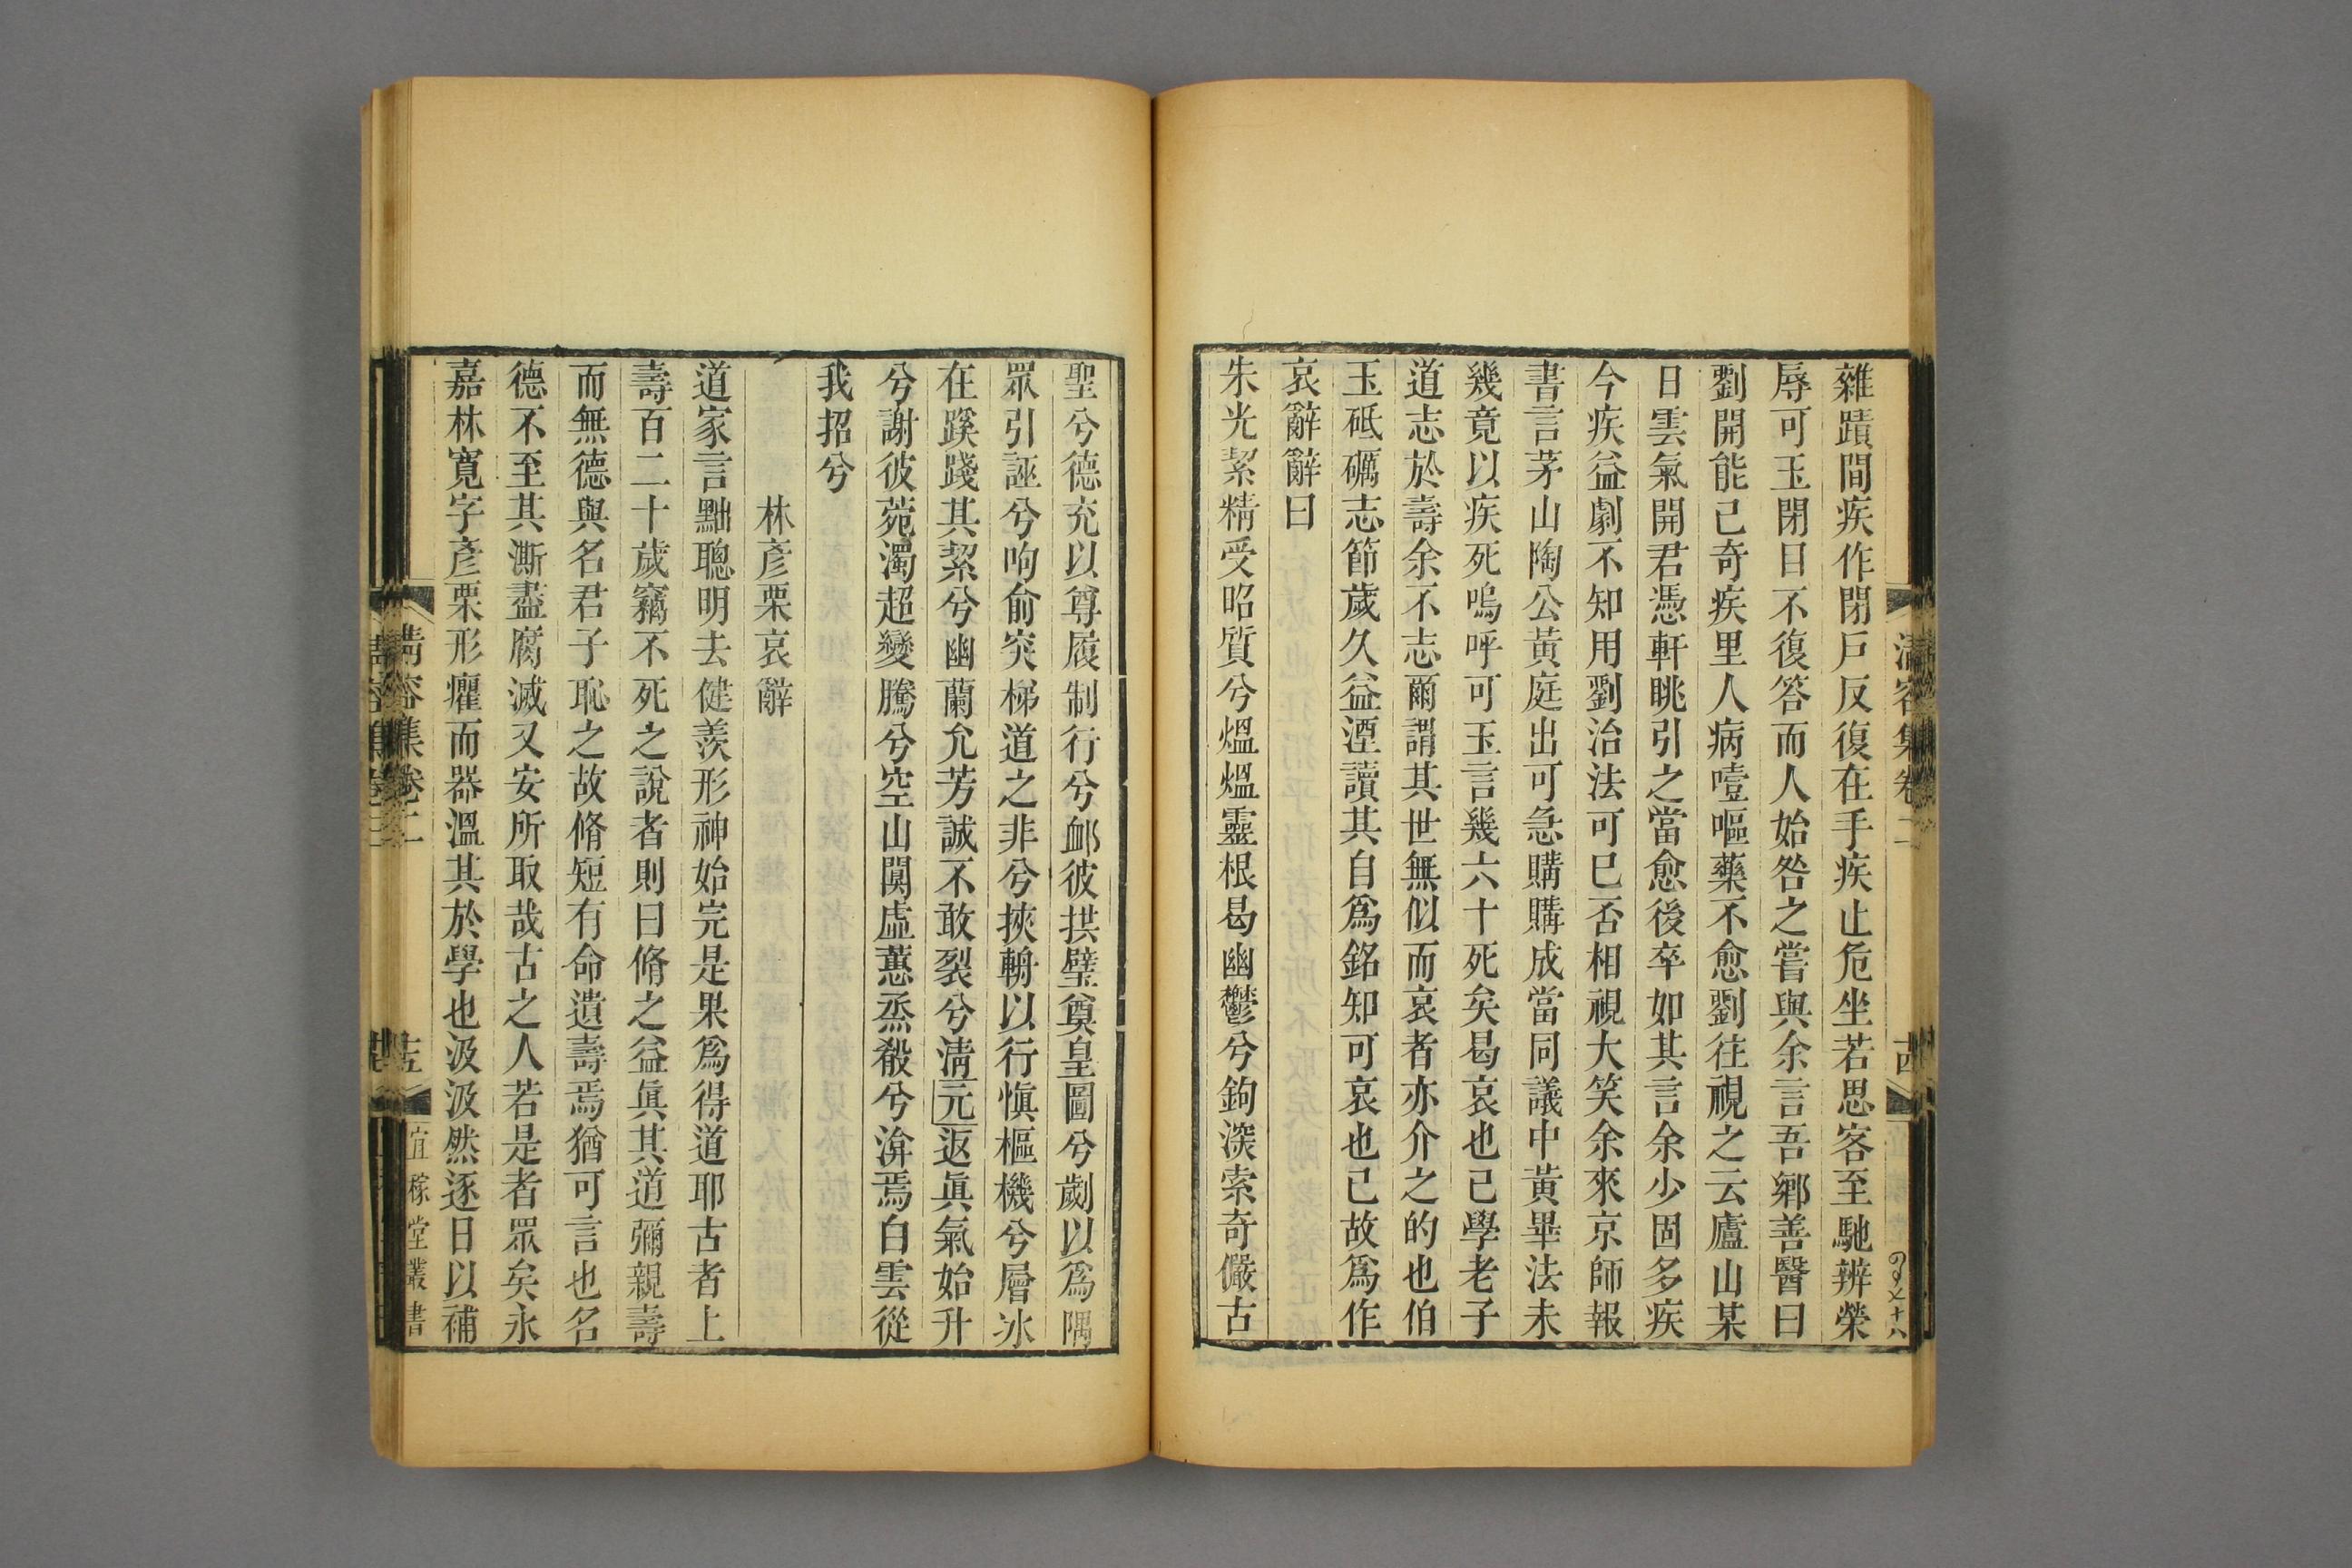 雜蹟間疾作閉戸反復在手疾止危坐若思客至馳辨榮
辱可玉閉目不復答而人始咎之嘗與余言吾鄉善醫曰
劉開能己奇疾里人病噎嘔藥不愈劉往視之云廬山某
日雲氣開君憑軒眺引之當愈後卒如其言余少固多疾
今疾益劇不知用劉治法可巳否相視大笑余來京師報
書言茅山陶公黃庭出可急購購成當同議中黃畢法未
幾竟以疾死嗚呼可玉言幾六十死矣曷哀也己學老子
道志於壽余不志爾謂其世無似而哀者亦介之的也伯
玉砥礪志節歲久益湮讀其自爲銘知可哀也己故爲作
哀辭辭曰
朱光絜精受昭質兮熅熅靈根曷幽鬱兮鉤深索奇儼古
聖兮德充以尊履制行兮卹彼拱璧奠皇圖兮劌以爲隅
眾引誣兮呴俞突梯道之非兮挾輈以行愼樞機兮層冰
在蹊踐其絜兮幽蘭允芳誠不敢裂兮淸元返眞氣始升
兮謝彼菀濁超變騰兮空山闃虛蕙烝殽兮渰焉白雲從
我招兮
林彥栗哀辭
道家言黜聰明去健羨形神始完是果爲得道耶古者上
壽百二十歲竊不死之說者則曰脩之益眞其道彌親壽
而無德與名君子恥之故脩短有命遺壽焉猶可言也名
德不至其澌盡腐滅又安所取哉古之人若是者眾矣永
嘉林寬字彥栗形癯而器溫其於學也汲汲然逐日以補
清容集卷二
十四
清容集卷二
十五
宜稼堂叢書